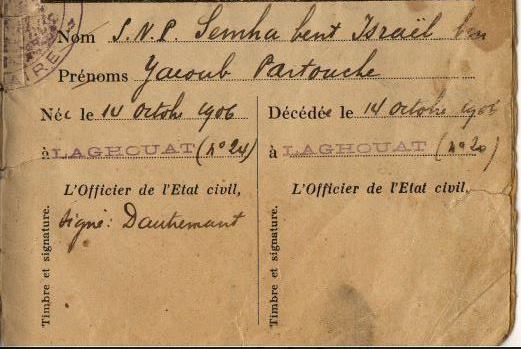 AIRE
Nom S.N.P. Semha bent Israël ben
Prénoms Yacoub Partouche
Née le 14 Octobre 1906
à LAGHOUAT (nº 24)
L'Officier de l'Etat civil,
Signé: Dautremant
Timbre et signature.
Décédée le 14 Octobre 1906
à LAGHOUAT (nº 20)
L'Officier de l'Etat civil,
Timbre et signature.